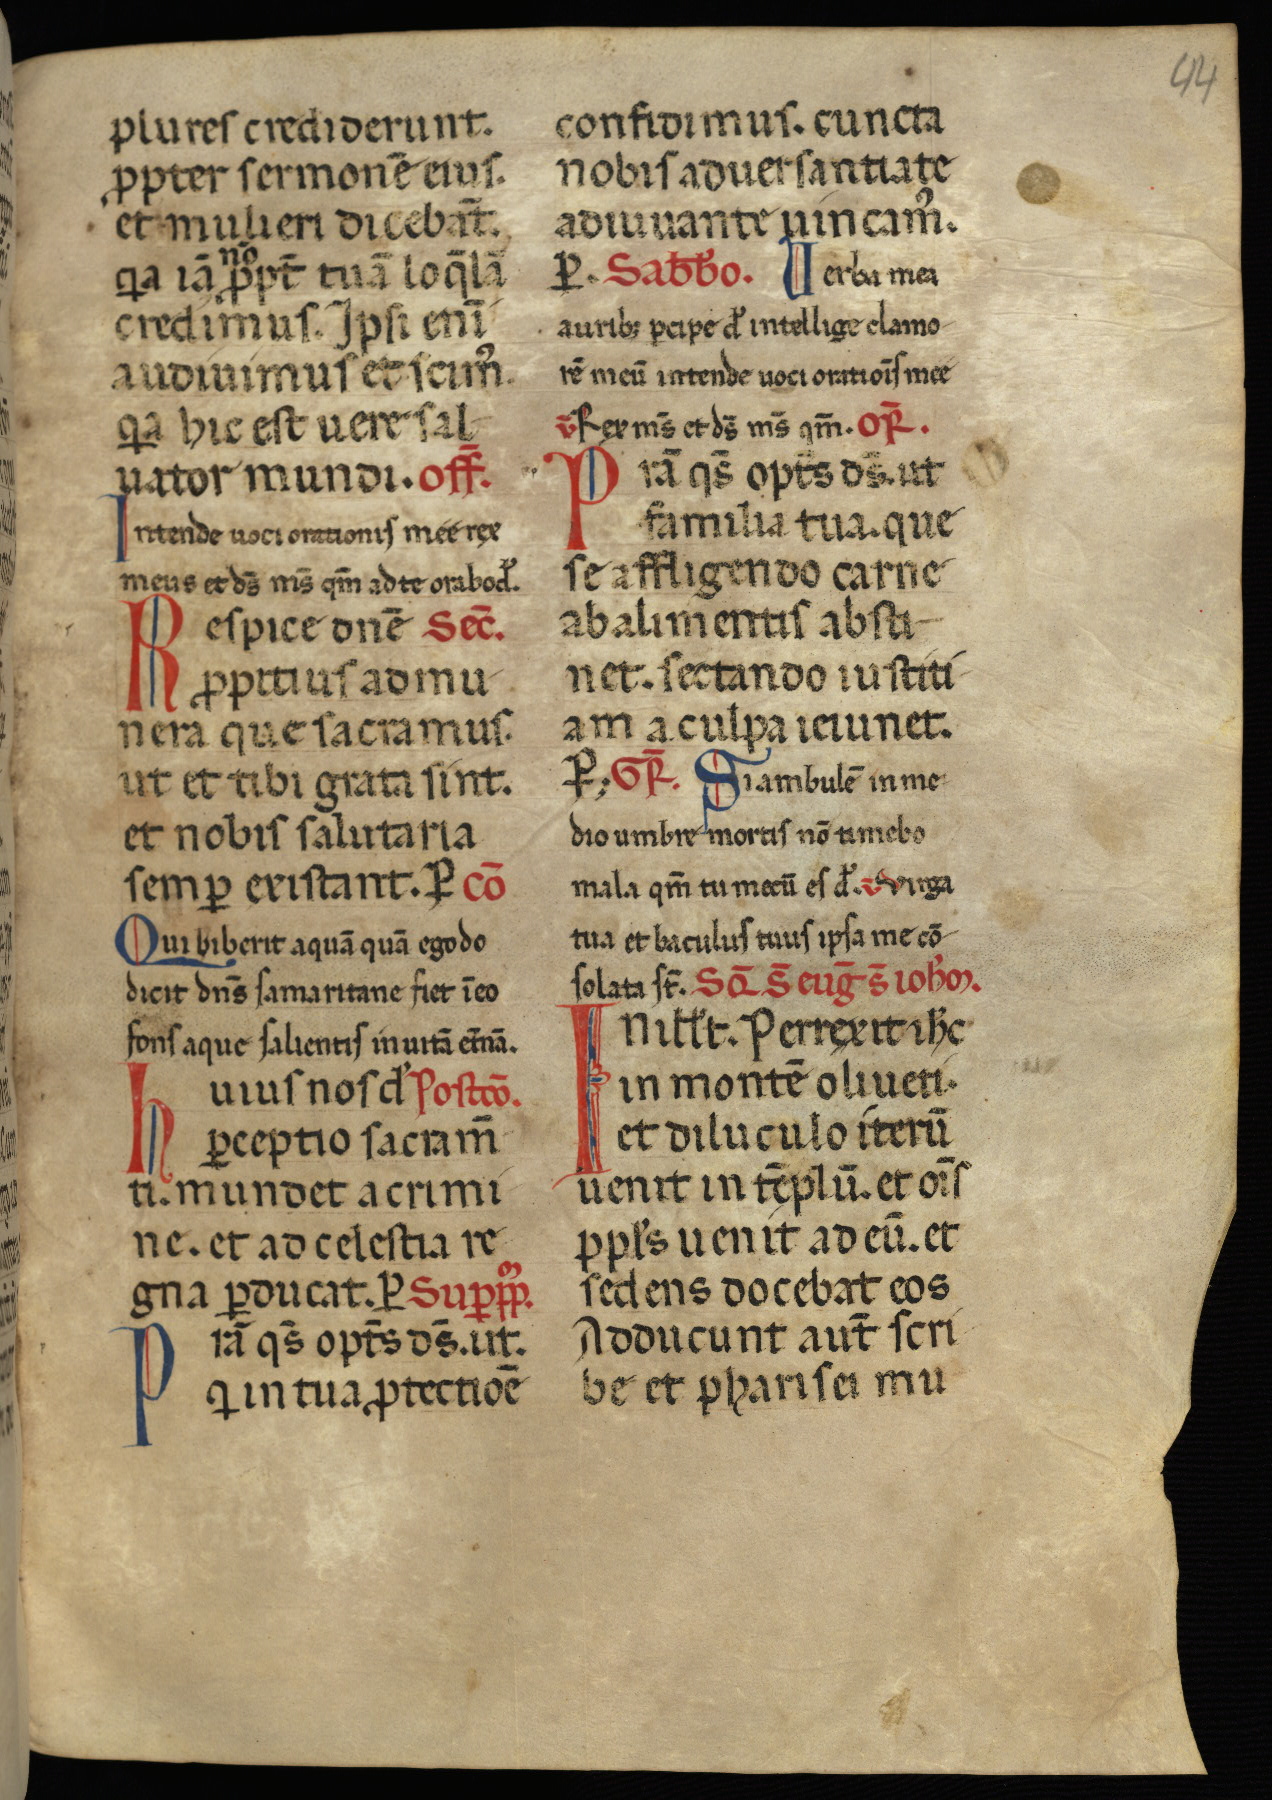 44
plures crediderunt.
ꝓpter sermonē eius.
et mulieri dicebat̄.
qa iā nō ꝓpt̄ tuā loq̄lā
credimus. Ipsi eni̅
audiuimus et scim᷒.
qa hic est uere sal
uator mundi. off̄.
Intende uoci orationis mee rex
meus et ds̄ ms̄ qm̄ ad te orabo d̕.
Respice dnē Sec̄.
ꝓpitius ad mu
nera que sacramus.
ut et tibi grata sint.
et nobis salutaria
semꝑ existant. P̱ cō
Qui biberit aquā quā ego do
dicit dns̄ samaritane fiet ī eo
fons aque salientis in uitā et̄nā.
huius nos d̕ Postcō.
ꝑceptio sacram̄
ti. mundet a crimi
ne. et ad celestia re
gna ꝑducat. P̱ Suꝑ pp̄.
Prā qs̄ opt̄s ds̄. ut.
q in tua ꝓtectioē
confidimus. cuncta
nobis aduersantia te
adiuuante uincam᷒.
P̱. Sab̄b̄o. Uerba mea
aurib; ꝑcipe d̕ intellige clamo
rē meū intende uoci oratiōis mee
v̄ Rex ms̄ et ds̄ ms̄ qm̄. OR̄.
Prā qs̄ opt̄s ds̄. ut
familia tua. que
se affligendo carne
ab alimentis absti
net. sectando iustiti
am a culpa ieiunet.
P̱; GR̄. Si ambulē in me
dio umbre mortis nō timebo
mala qm̄ tu mecū es d̕. v̄ uirga
tua et baculus tuus ipsa me cō
solata st̄. Sc̄d̄. S̄ euḡ s̄ ioh̄m.
In ill̄t. Perrexit ih̄c
in montē oliueti.
et diluculo iterū
uenit in tēplū. et oīs
ppl̄s uenit ad eū. et
sedens docebat eos
Adducunt aut̄ scri
be et pharisei mu